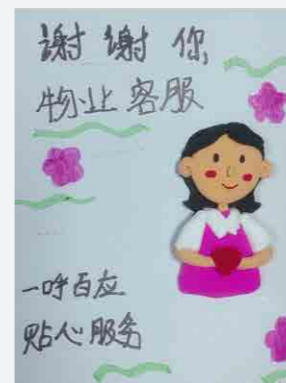 谢谢你,
物业客服
一呼百应
贴心服务